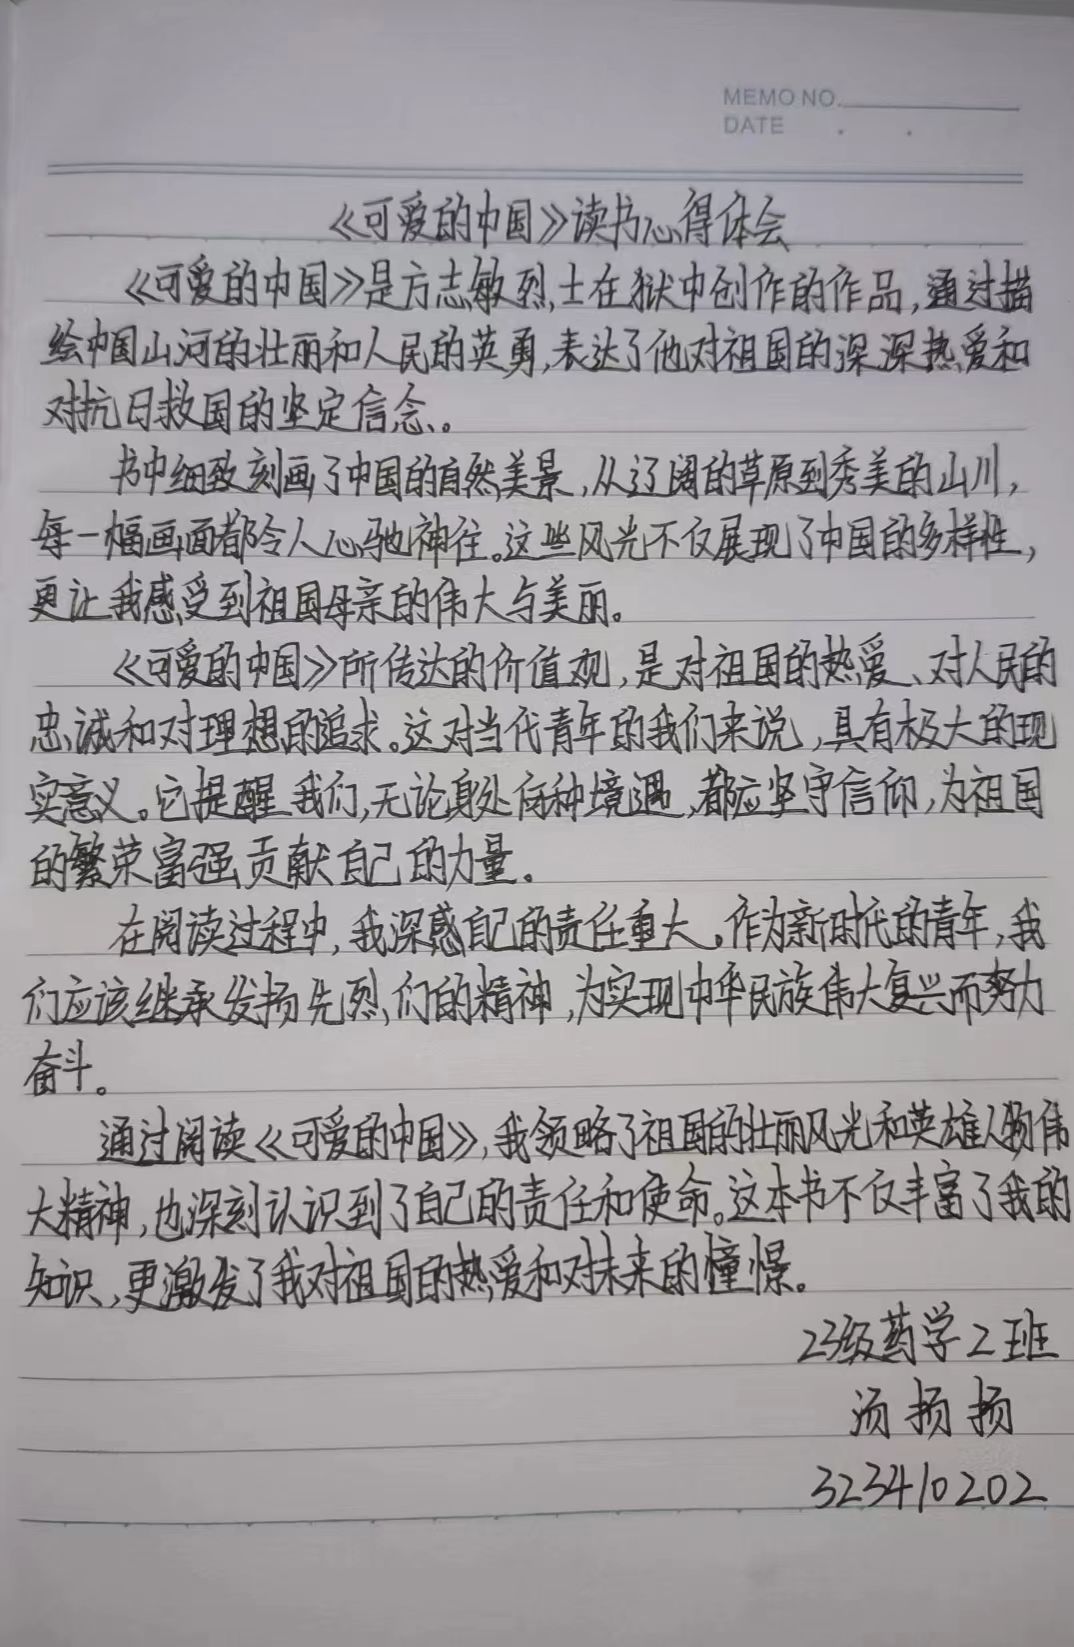 MEMO NO.
DATE . .
《可爱的中国》读书心得体会
《可爱的中国》是方志敏烈士在狱中创作的作品,通过描
绘中国山河的壮丽和人民的英勇,表达了他对祖国的深深热爱和
对抗日救国的坚定信念。
书中细致刻画了中国的自然美景,从辽阔的草原到秀美的山川,
每一幅画面都令人心驰神往。这些风光不仅展现了中国的多样性,
更让我感受到祖国母亲的伟大与美丽。
《可爱的中国》所传达的价值观,是对祖国的热爱、对人民的
忠诚和对理想的追求。这对当代青年的我们来说,具有极大的现
实意义。它提醒我们,无论身处何种境遇,都应坚守信仰,为祖国
的繁荣富强贡献自己的力量。
在阅读过程中,我深感自己的责任重大。作为新时代的青年,我
们应该继承发扬先烈们的精神,为实现中华民族伟大复兴而努力
奋斗。
通过阅读《可爱的中国》,我领略了祖国的壮丽风光和英雄人物伟
大精神,也深刻认识到了自己的责任和使命。这本书不仅丰富了我的
知识,更激发了我对祖国的热爱和对未来的憧憬。
23级药学2班
汤扬扬
323410202